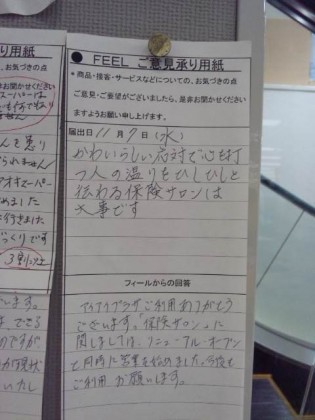 り用紙
お聞かせください
スーパーは
んを思り
られません
アオキスーパー
めました
行きました
っくりです
います。
はできる
のですが
が現状
いたし
● FEEL ご意見承り用紙
*商品・接客・サービスなどについての、お気づきの点
ご意見・ご要望がございましたら、是非お聞かせください
ますようお願い申し上げます。
届出日 11月7日(水)
かわいらしい応対で心も打
つ人の温りもひしひしと
伝わる保険サロンは
大事です
フィールからの回答
アイアイプラザご利用ありがとう
ございます。「保険サロン」に
関しましては、リニューアル・オープン
と同時に営業を始めました。今後も
ご利用お願いします。